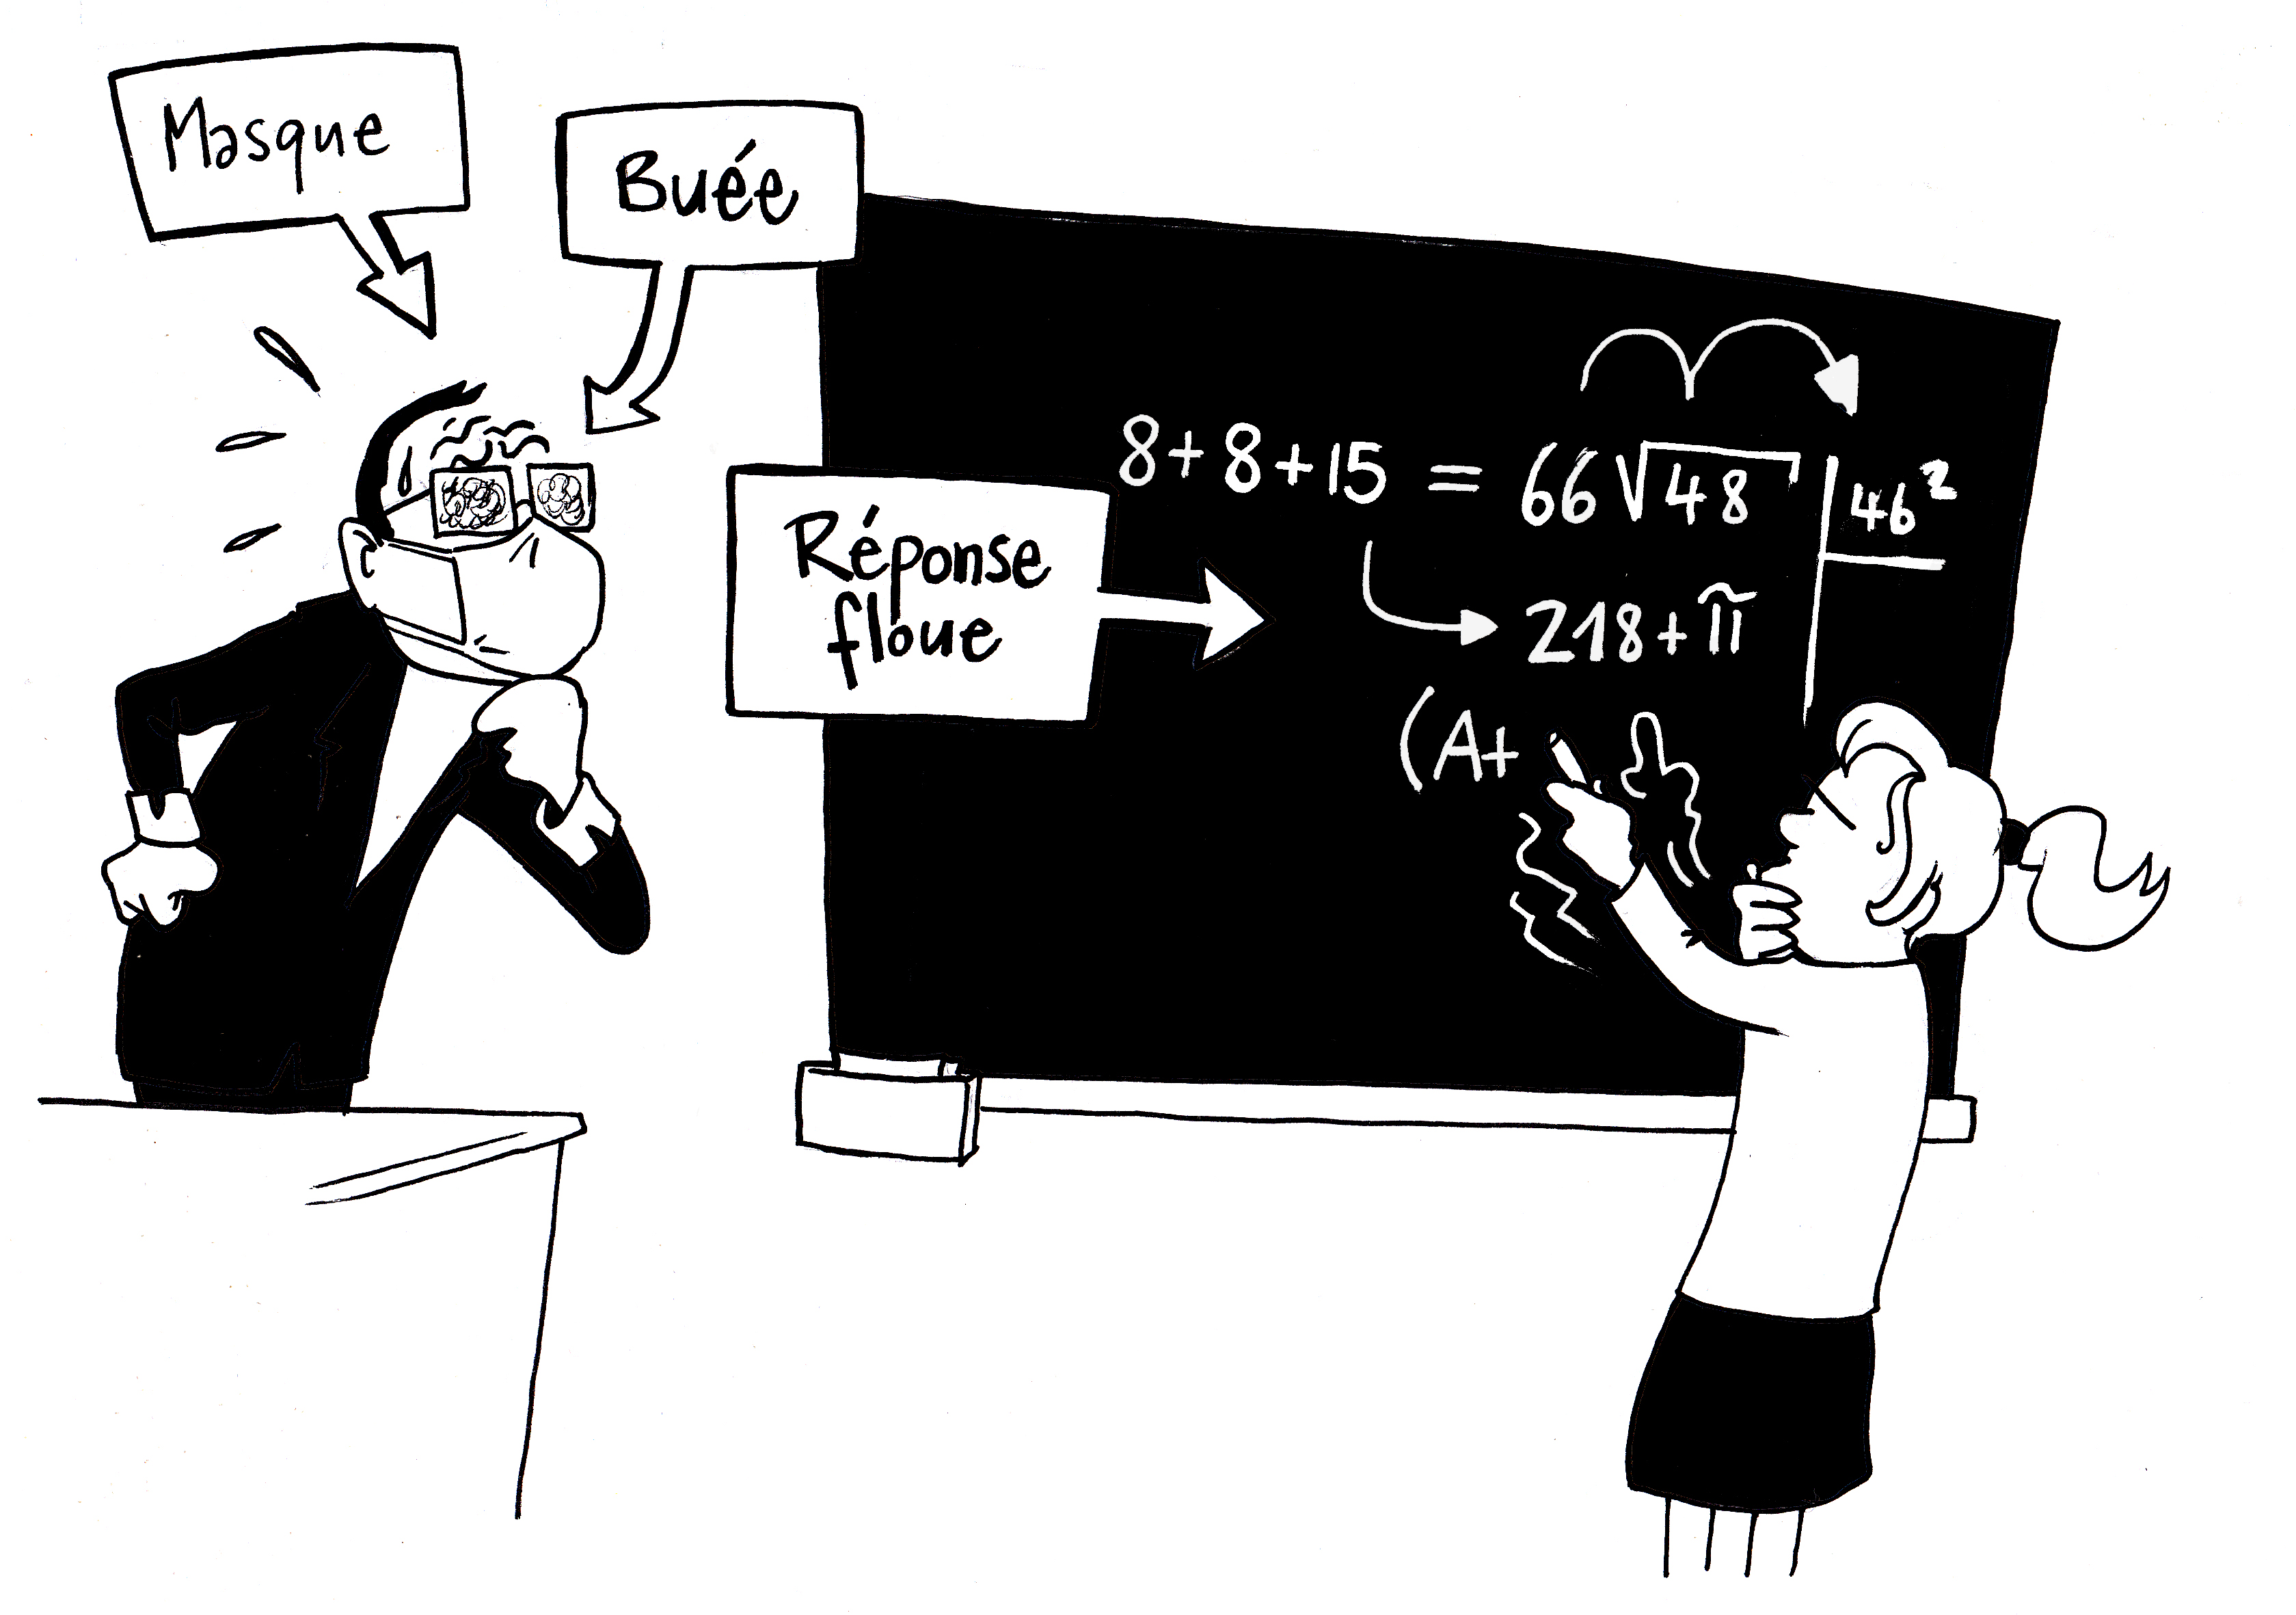 Masque
Buée
Réponse
floue
8+8+15 = 66√48 46²
218+π
(A+